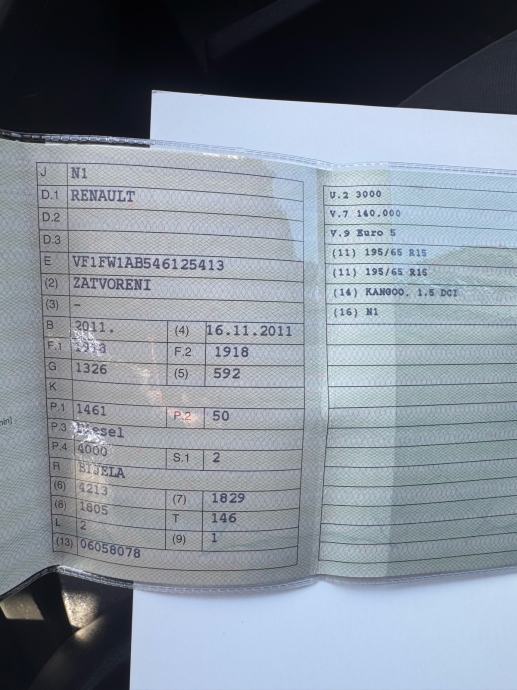 J N1
D.1 RENAULT
D.2
D.3
E VF1FW1AB546125413
(2) ZATVORENI
(3) -
B 2011. (4) 16.11.2011
F.1 1918 F.2 1918
G 1326 (5) 592
K
P.1 1461 P.2 50
P.3 Diesel
P.4 4000 S.1 2
R BIJELA
(6) 4213 (7) 1829
(8) 1805 T 146
L 2 (9) 1
(13) 06058078
U.2 3000
V.7 140,000
V.9 Euro 5
(11) 195/65 R15
(11) 195/65 R15
(14) KANGOO, 1.5 DCI
(16) N1